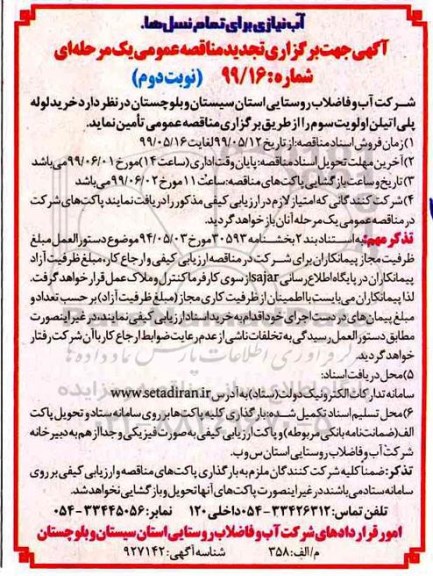 آب نیازی برای تمام نسل‌ها.
آگهی جهت برگزاری تجدید مناقصه عمومی یک مرحله‌ای
شماره: ۹۹/۱۶ (نوبت دوم)
شرکت آب و فاضلاب روستایی استان سیستان و بلوچستان در نظر دارد خرید لوله
پلی اتیلن اولویت سوم را از طریق برگزاری مناقصه عمومی تأمین نماید.
۱) زمان فروش اسناد مناقصه: از تاریخ ۹۹/۰۵/۱۲ لغایت ۹۹/۰۵/۱۶
۲) آخرین مهلت تحویل اسناد مناقصه: پایان وقت اداری (ساعت ۱۴) مورخ ۹۹/۰۶/۰۱ می‌باشد
۳) تاریخ و ساعت بازگشایی پاکت‌های مناقصه: ساعت ۱۱ مورخ ۹۹/۰۶/۰۲ می‌باشد
۴) شرکت کنندگانی که امتیاز لازم در ارزیابی کیفی مذکور را دریافت نمایند پاکت‌های شرکت
در مناقصه عمومی یک مرحله آنان باز خواهد گردید.
تذکر مهم: به استناد بند ۲ بخشنامه ۳۰۵۹۳ مورخ ۹۴/۰۵/۰۳ موضوع دستورالعمل مبلغ
ظرفیت مجاز پیمانکاران برای شرکت در مناقصه ارزیابی کیفی و ارجاع کار، مبلغ ظرفیت آزاد
پیمانکاران در پایگاه اطلاع رسانی sajar از سوی کارفرما کنترل و ملاک عمل قرار خواهد گرفت.
لذا پیمانکاران می‌بایست با اطمینان از ظرفیت کاری مجاز (مبلغ ظرفیت آزاد) بر حسب تعداد و
مبلغ پیمان های در دست اجرای خود اقدام به خرید اسناد ارزیابی کیفی نمایند، در غیر اینصورت
مطابق دستورالعمل رسیدگی به تخلفات ناشی از عدم رعایت ضوابط ارجاع کار با آن شرکت رفتار
خواهد گردید.
۵) محل دریافت اسناد:
سامانه تدارکات الکترونیک دولت (ستاد) به آدرس www.setadiran.ir
۶) محل تسلیم اسناد تکمیل شده: بارگذاری کلیه پاکت ها بر روی سامانه ستاد و تحویل پاکت
الف (ضمانت نامه بانکی مربوطه) و پاکت ارزیابی کیفی به صورت فیزیکی و جدا از هم به دبیرخانه
شرکت آب و فاضلاب روستایی استان س و ب.
تذکر: ضمنا کلیه شرکت کنندگان ملزم به بارگذاری پاکت‌های مناقصه و ارزیابی کیفی بر روی
سامانه ستاد می‌باشند در غیر اینصورت پاکت های آنها تحویل و بازگشایی نخواهد شد.
تلفن تماس: ۳۳۴۲۶۳۱۲-۰۵۴ داخلی ۱۲۰ نمابر: ۳۳۴۴۵۰۵۶-۰۵۴
امور قراردادهای شرکت آب و فاضلاب روستایی استان سیستان و بلوچستان
م/الف: ۳۵۸ شناسه آگهی: ۹۲۷۱۴۲